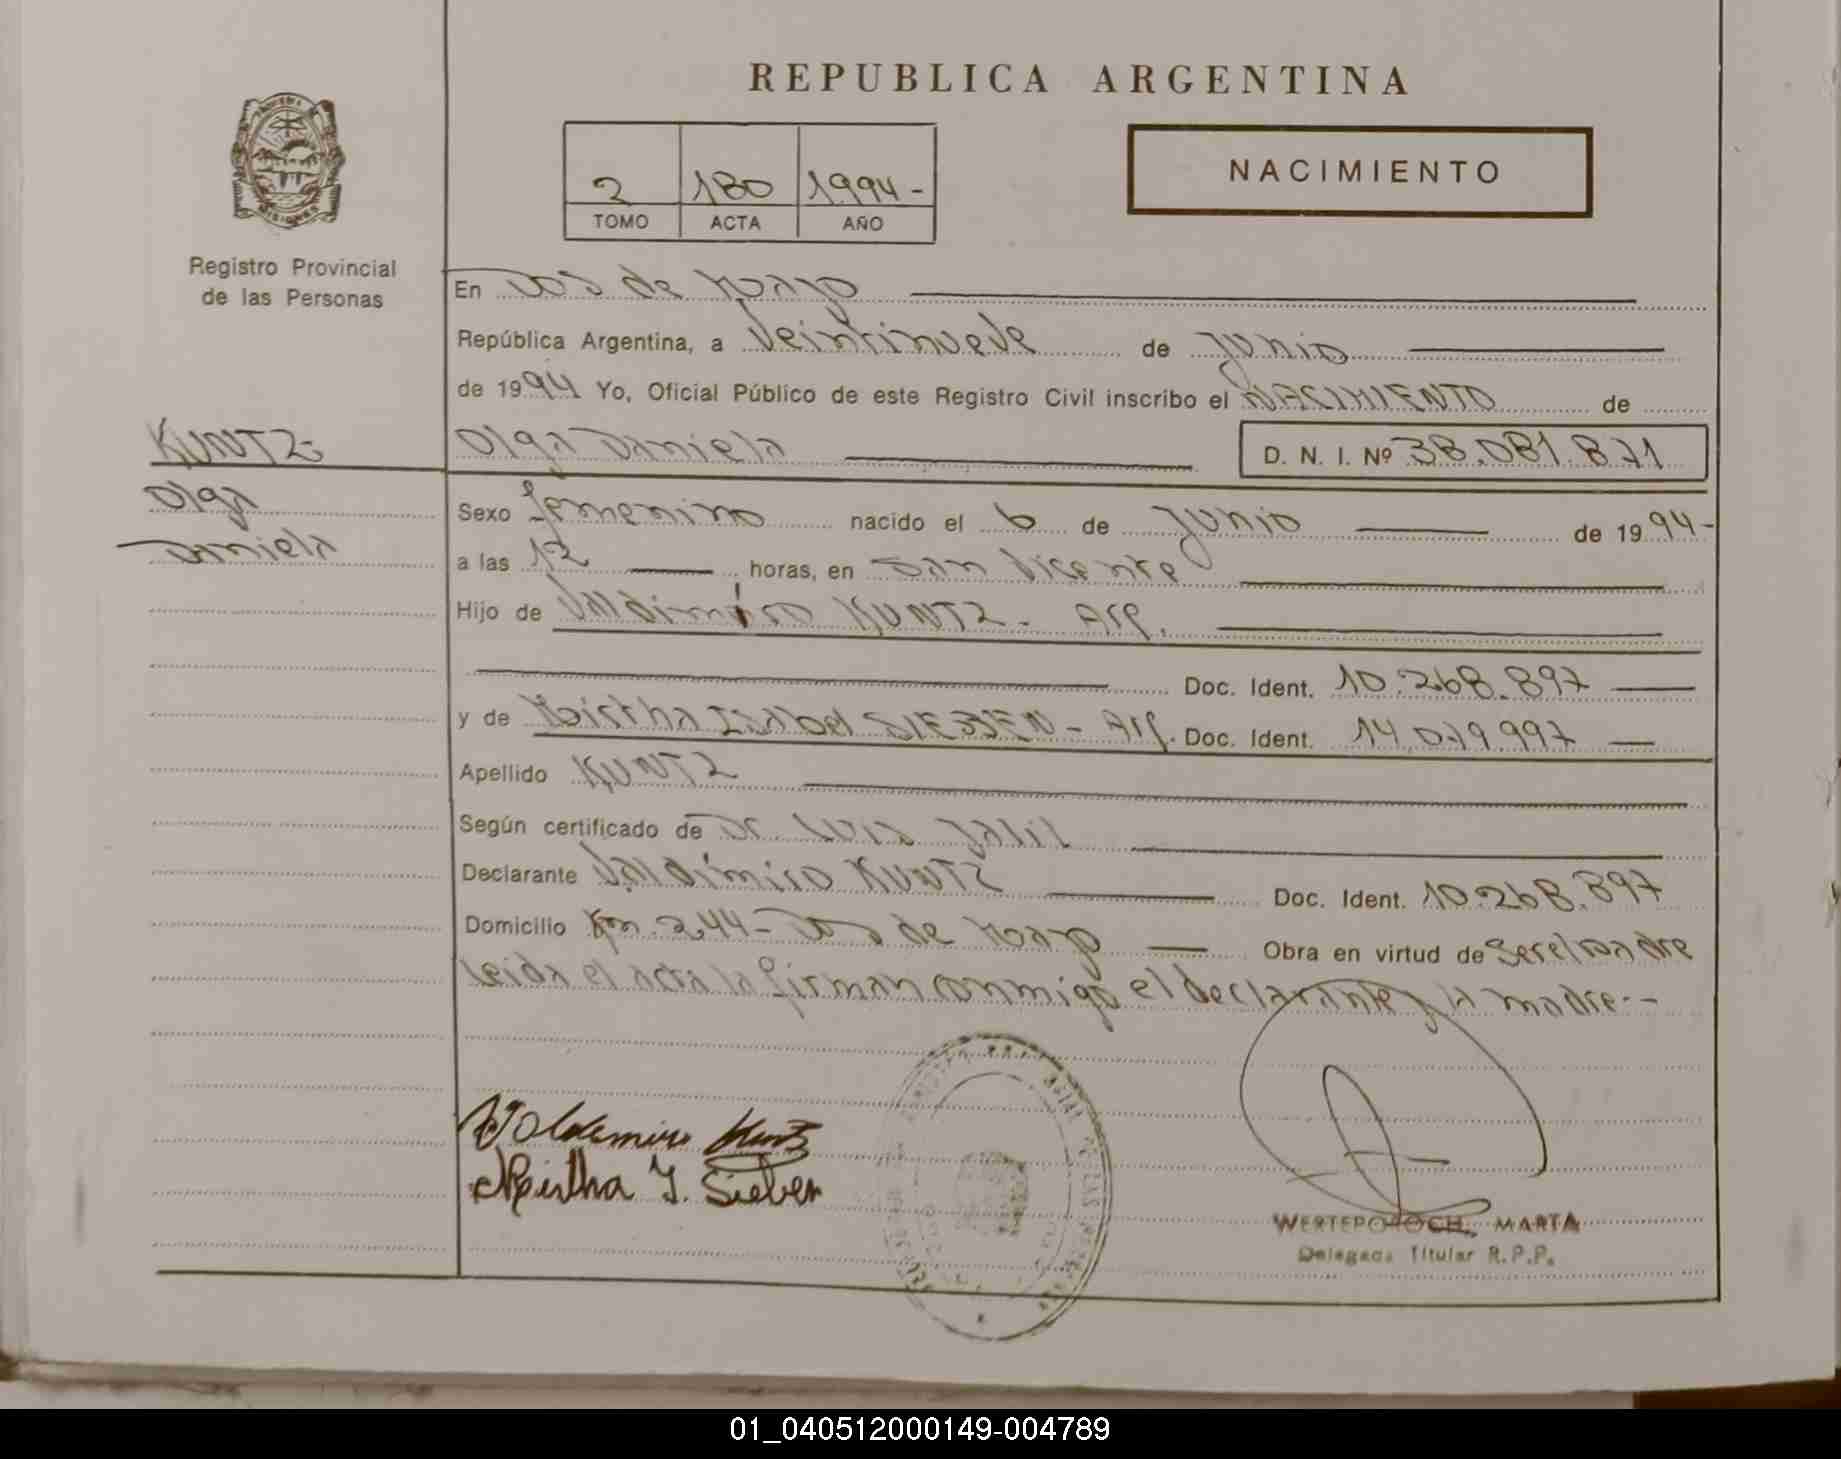 REPUBLICA ARGENTINA
NACIMIENTO
2 180 1994-
TOMO ACTA AÑO
Registro Provincial
de las Personas
En Dos de Mayo
República Argentina, a Veintinueve de Junio
de 1994 Yo, Oficial Público de este Registro Civil inscribo el NACIMIENTO de
KUNTZ-
Olga Daniela D. N. I. Nº 38.081.871
Olga
Daniela
Sexo femenino nacido el 6 de Junio de 1994-
a las 12 horas, en San Vicente
Hijo de Valdimiro KUNTZ - Arg.
Doc. Ident. 10.268.897
y de Mirtha Isabel SIEBEN - Arg. Doc. Ident. 14.079.997
Apellido KUNTZ
Según certificado de Dr. Luis Jalil
Declarante Valdimiro KUNTZ Doc. Ident. 10.268.897
Domicilio Km. 244 - Dos de Mayo Obra en virtud de Ser el Padre
Leída el acta la firman conmigo el declarante y la madre.--
Valdemiro Kuntz
Mirtha I. Sieben
MARTA
Delegada Titular R.P.P.
01_040512000149-004789